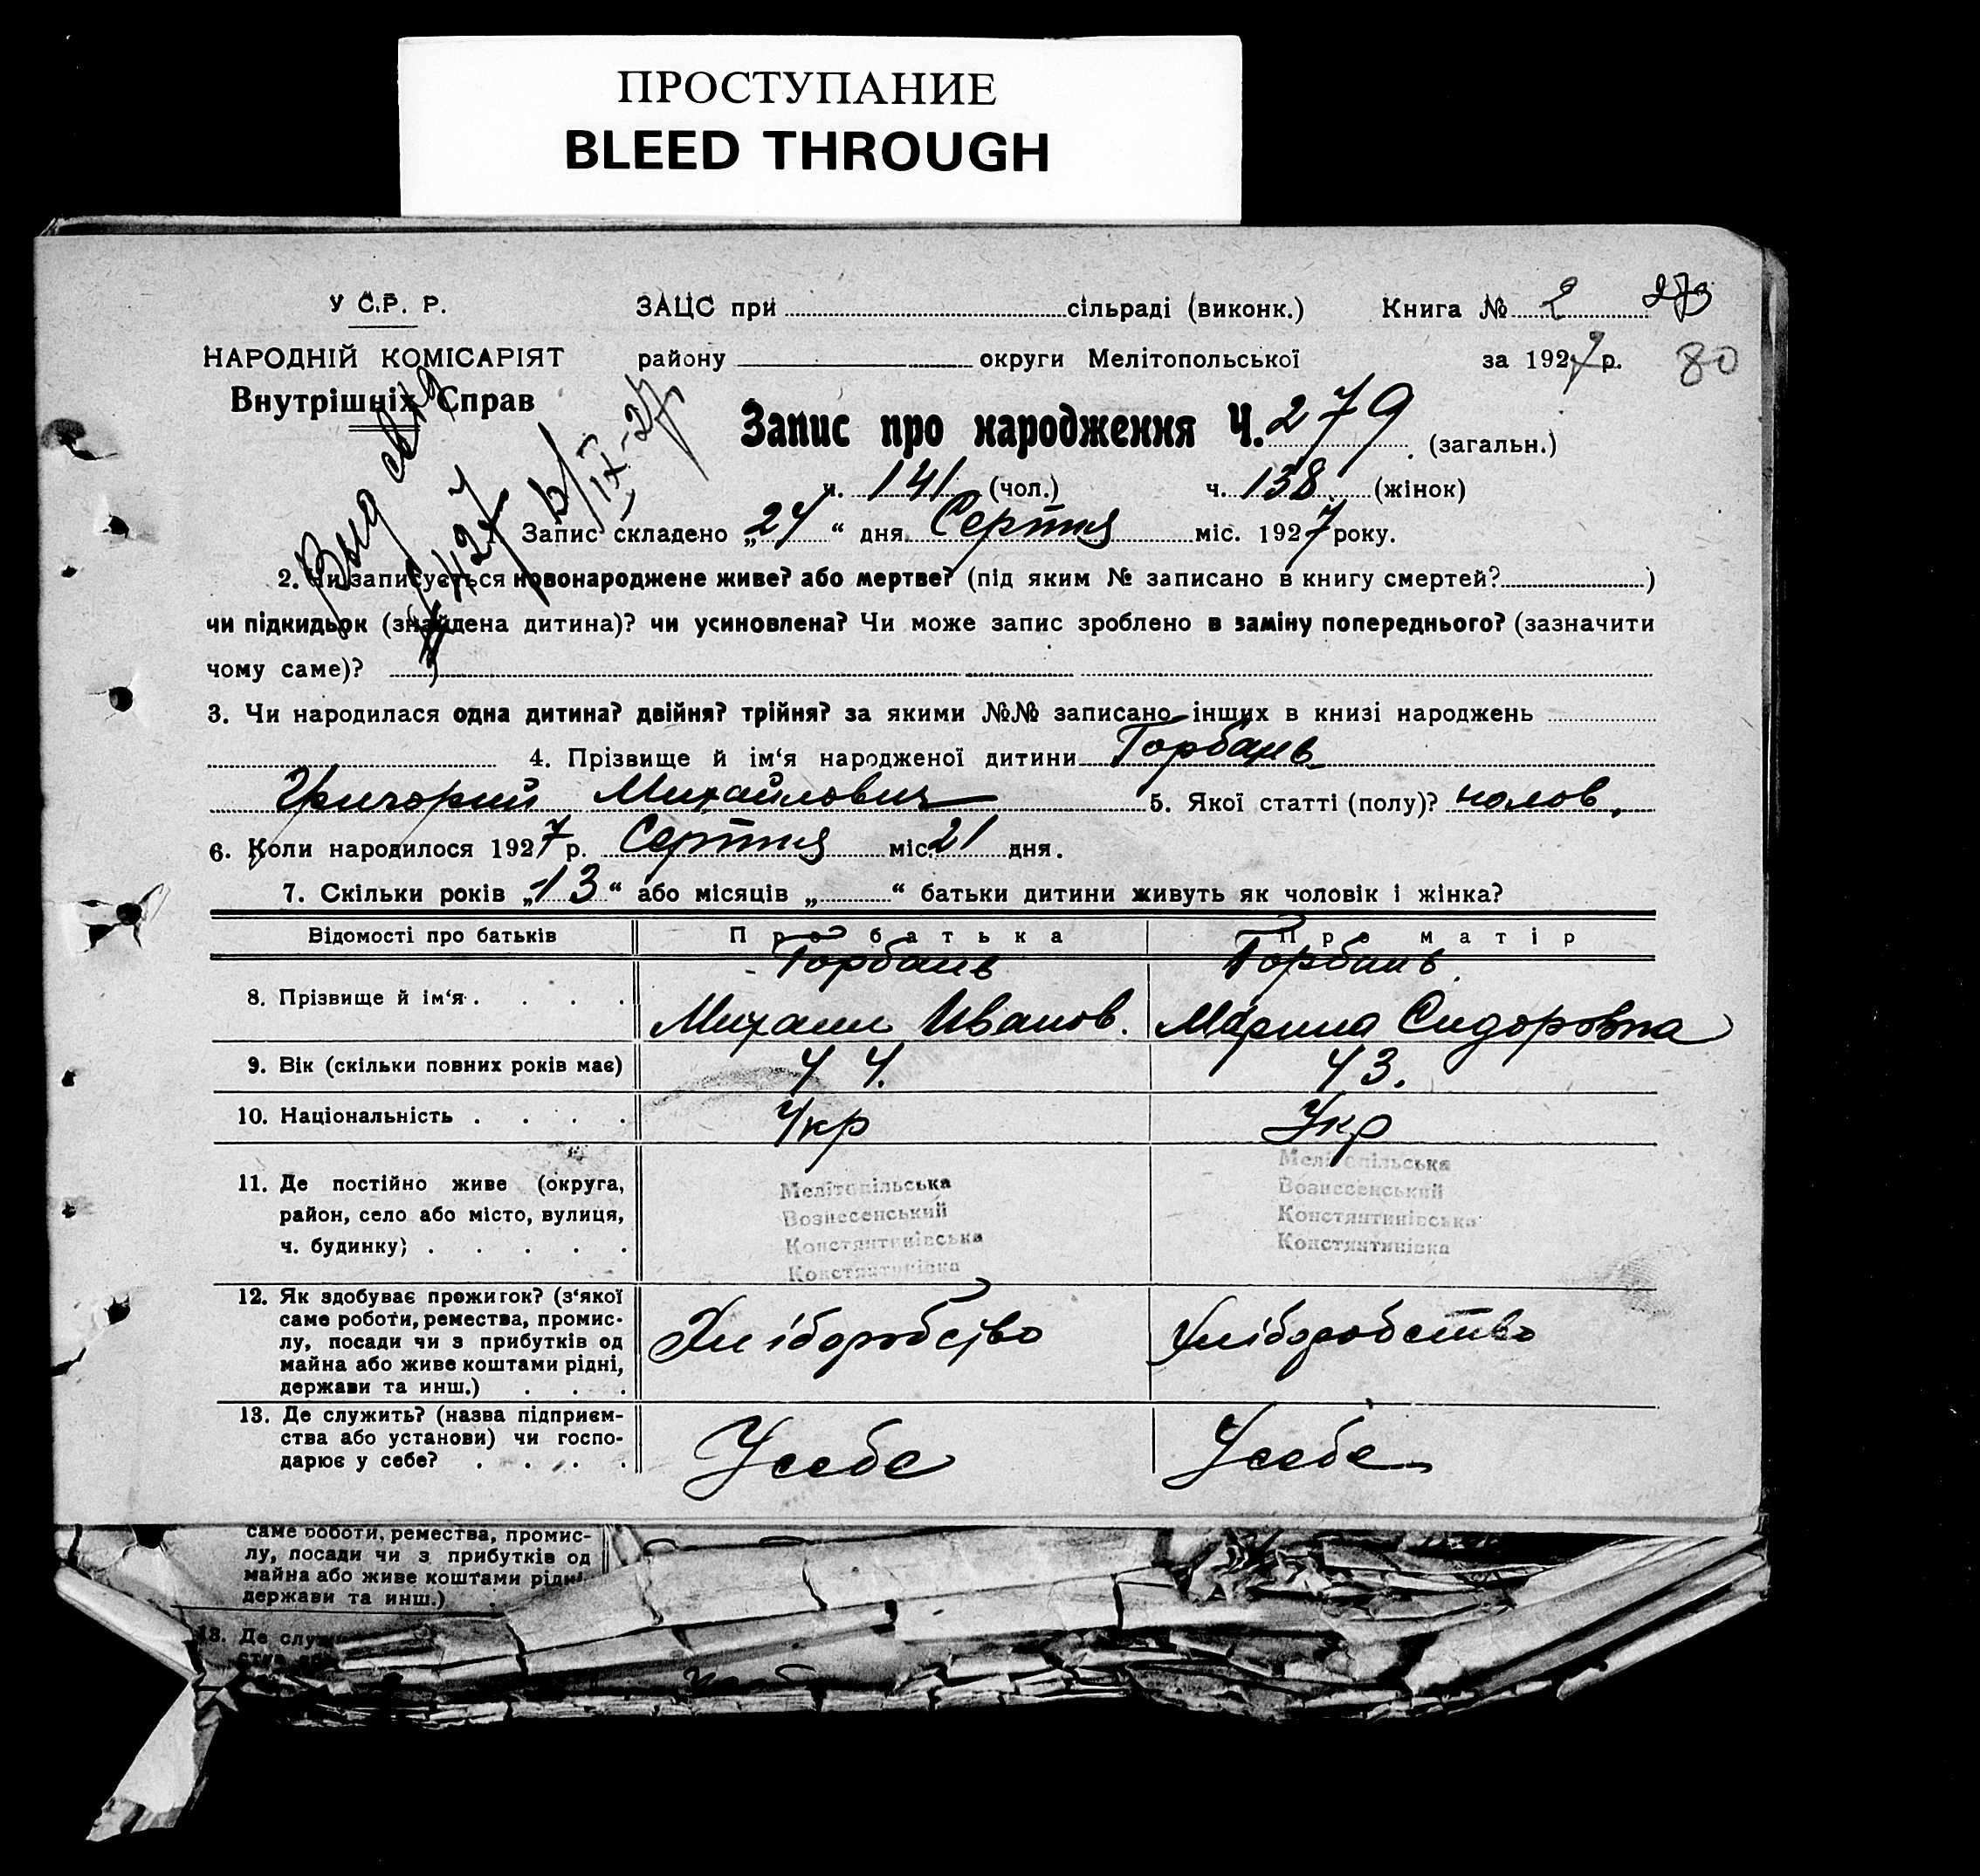 ПРОСТУПАНИЕ
BLEED THROUGH
У С.Р. Р.
НАРОДНІЙ КОМІСАРІЯТ
Внутрішніх Справ
ЗАЦС при сільраді (виконк.) Книга № 2 273
району округи Мелітопольської за 1927 р. 80
Запис про народження Ч. 279 (загальн.)
ч. 141 (чол.) ч. 138 (жінок)
Запис складено „24“ дня Серпня міс. 1927 року.
2. Чи записується новонароджене живе? або мертве? (під яким № записано в книгу смертей? )
чи підкидьок (знайдена дитина)? чи усиновлена? Чи може запис зроблено в заміну попереднього? (зазначити
чому саме)?
3. Чи народилася одна дитина? двійня? трійня? за якими №№ записано інших в книзі народжень
4. Прізвище й ім‘я народженої дитини Горбань
Григорий Михайлович 5. Якої статті (полу)? чолов.
6. Коли народилося 1927 р. Серпня міс. 21 дня.
7. Скільки років „13“ або місяців „ “ батьки дитини живуть як чоловік і жінка?
Відомості про батьків Про батька Про матір
8. Прізвище й ім‘я Горбань Горбань
Михаил Иванов. Марина Сидоровна
9. Вік (скільки повних років має) 44. 43.
10. Національність Укр Укр
11. Де постійно живе (округа,
район, село або місто, вулиця,
ч. будинку)
Мелітопільська
Вознесенський
Константинівська
Константинівка
Мелітопільська
Вознесенський
Константинівська
Константинівка
12. Як здобуває прожиток? (з‘якої
саме роботи, ремества, промис-
лу, посади чи з прибутків од
майна або живе коштами рідні,
держави та инш.)
Хліборобство Хліборобство
13. Де служить? (назва підприєм-
ства або установи) чи госпо-
дарює у себе?
Усебе Усебе
саме роботи, ремества, промис-
лу, посади чи з прибутків од
майна або живе коштами рідні,
держави та инш.)
13. Де